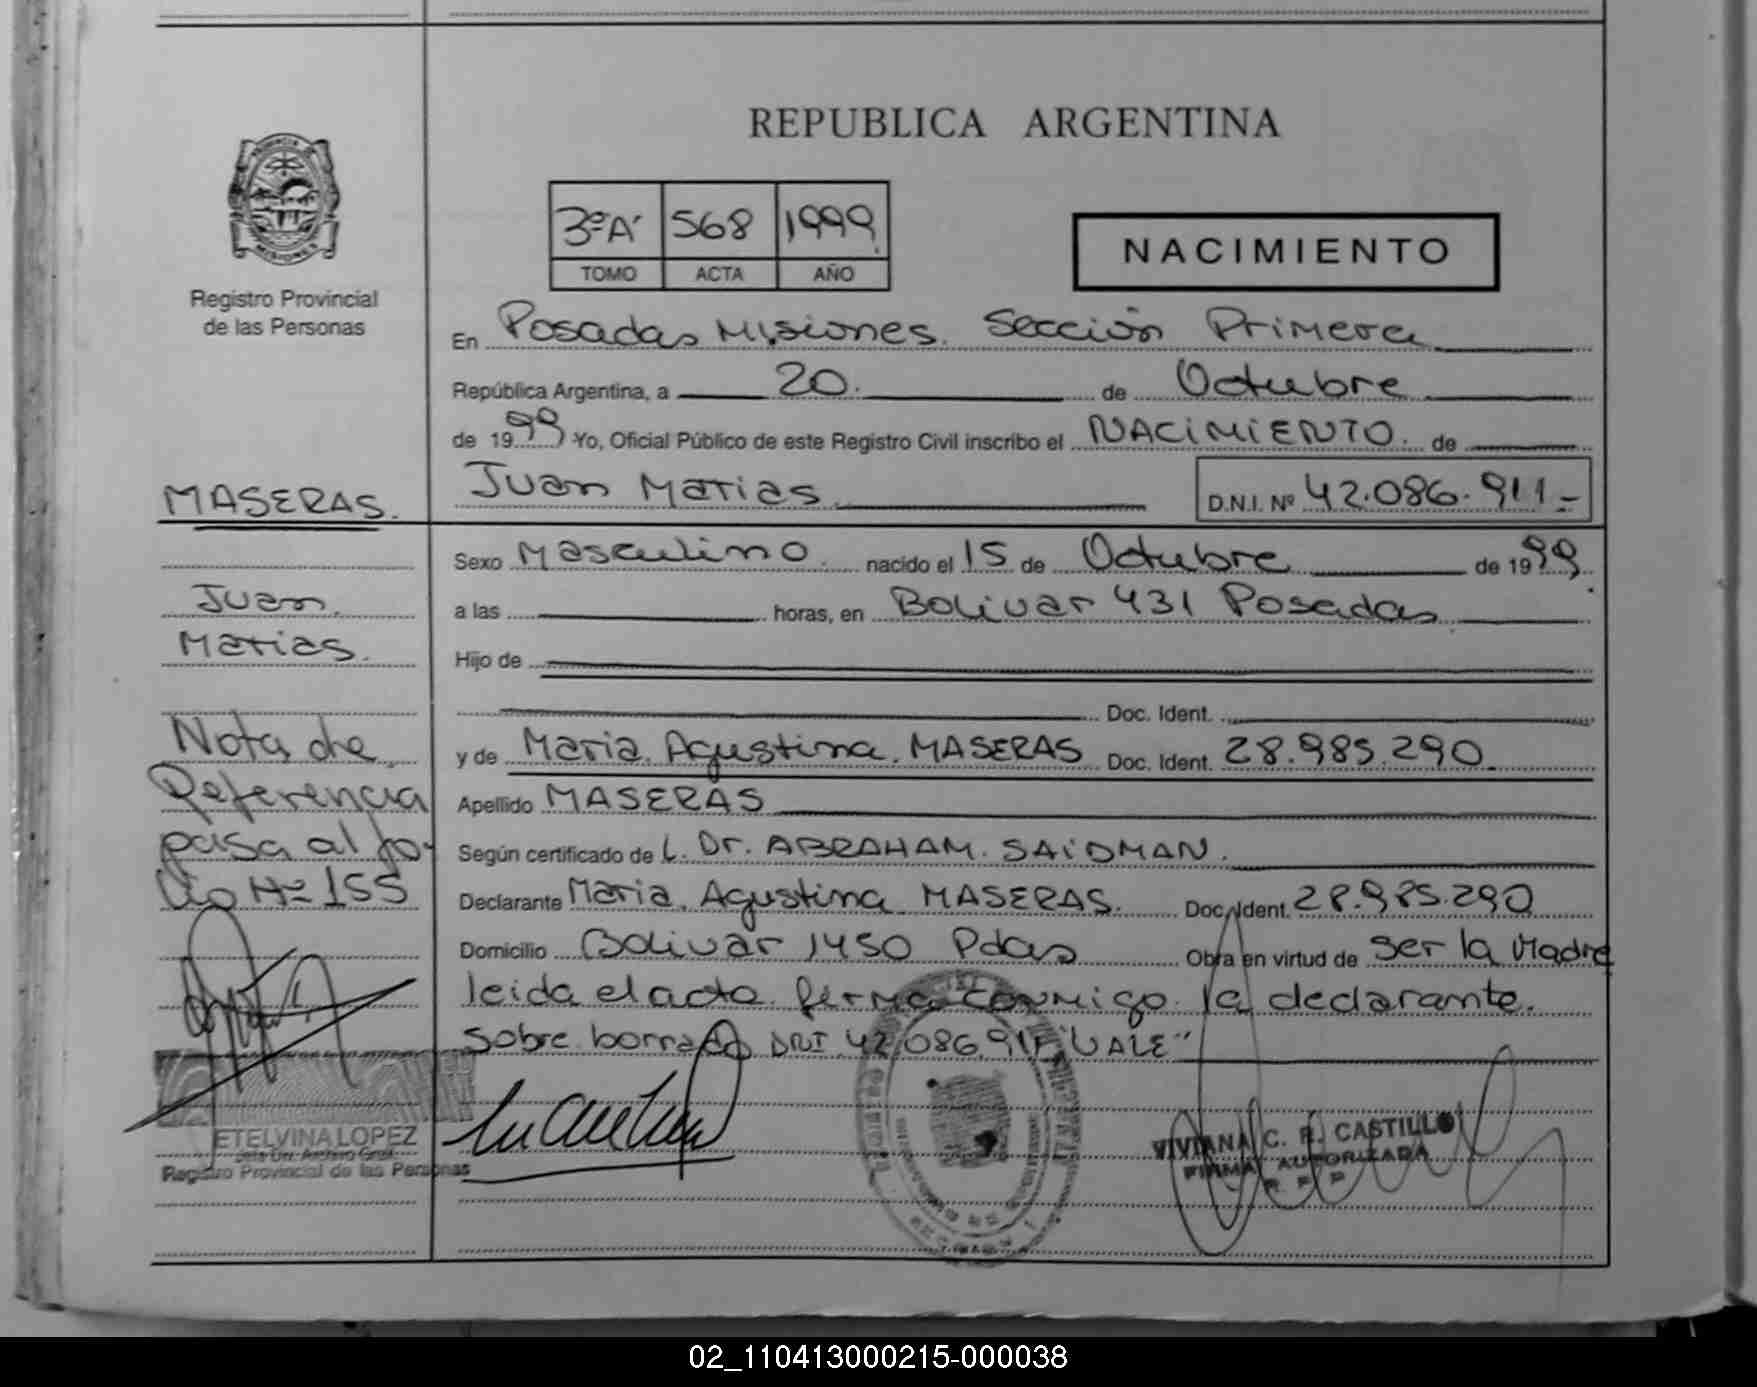 REPUBLICA ARGENTINA
3ºA' 568 1999
TOMO ACTA AÑO
NACIMIENTO
Registro Provincial
de las Personas
En Posadas Misiones. Sección Primera
República Argentina, a 20. de Octubre
de 1999 Yo, Oficial Público de este Registro Civil inscribo el NACIMIENTO. de
Juan Matias D.N.I. Nº 42.086.911-
MASERAS.
Juan.
Matias.
Sexo Masculino. nacido el 15 de Octubre de 1999.
a las horas, en Bolivar 431 Posadas
Hijo de
Doc. Ident.
y de Maria. Agustina. MASERAS Doc. Ident. 28.985.290
Apellido MASERAS
Según certificado de L. Dr. ABRAHAM. SAIDMAN.
Declarante Maria. Agustina MASERAS. Doc. Ident. 28.985.290
Domicilio Bolivar 1450 Pdas Obra en virtud de ser la Madre
leida el acta firma conmigo la declarante.
Sobre borrado DNI 42.086.911 "VALE"
Nota de
Referencia
pasa al fo-
lio Nº 155
ETELVINA LOPEZ
Jefa Div. Archivo Gral.
Registro Provincial de las Personas
VIVIANA C. R. CASTILLO
FIRMA AUTORIZADA
R. P. P.
02_110413000215-000038